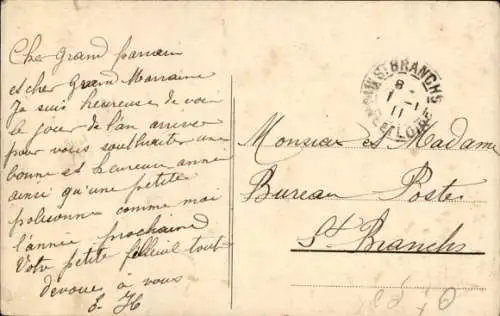 Cher grand parrain
et cher Grand Marraine
Je suis heureuse de voir
le jour de l'an arriver
pour vous souhaiter une
bonne et heureux année
ainsi qu'une petite
polissonne comme moi
l'année prochaine
Votre petite filleul tout
dévoué à vous
E. H
ST BRANCHS
8
1 - 1
11
ET LOIRE
Monsieur et Madame
Bureau Poste
St Branchs